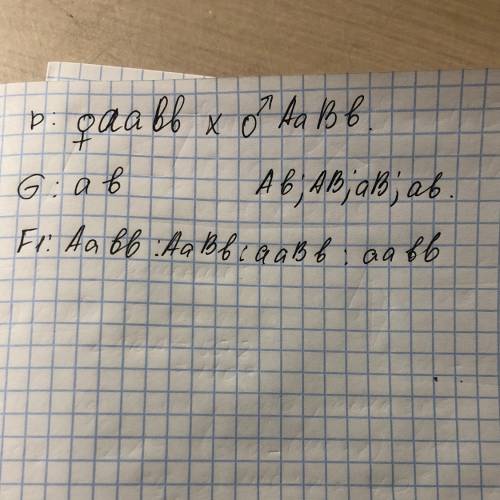 P: ♀ aabb x ♂ AaBb.
G: ab Ab; AB; aB; ab.
F1: Aabb : AaBb : aaBb : aabb